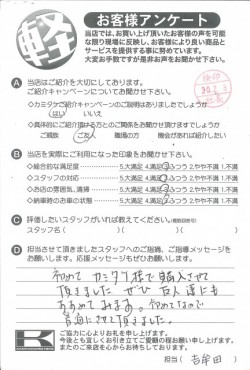 軽
お客様アンケート
当店では、お買い上げ頂いたお客様の声を可能
な限り現場に反映し、お客様により良い商品と
サービスを提供する事に努めています。
大変お手数ですが是非お声をお聞かせ下さい。
A 当店はご紹介を大切にしております。
ご紹介キャンペーンについてお聞かせ下さい。
◇カミタケご紹介キャンペーンのご説明はありましたでしょうか
はい いいえ
◇具体的にご紹介頂ける方とのご関係をお聞かせ頂けますでしょうか
ご親戚 ご友人 職場の方 機会があれば紹介したい
B 当店を実際にご利用になった印象をお聞かせ下さい。
◇総合的な満足度 5.大満足 4.満足 3.ふつう 2.やや不満 1.不満
◇スタッフの対応 5.大満足 4.満足 3.ふつう 2.やや不満 1.不満
◇お店の雰囲気、清掃 5.大満足 4.満足 3.ふつう 2.やや不満 1.不満
◇納車時のお車の状態 5.大満足 4.満足 3.ふつう 2.やや不満 1.不満
C 評価したいスタッフがいれば教えてください。(複数回答可)
スタッフ名( )( )( )
D 担当させて頂きましたスタッフへのご指摘、ご指導メッセージを
お願いします。応援メッセージもぜひお願いします。
初めて カミタケ様で購入させて
頂きました。ぜひ 友人達にも
おすすめてみます。初めてなので
普通にさせて頂きました。
K
ご協力に心よりお礼を申し上げます。
今後とも宜しくお引き立てご愛顧の程お願い申し上げます。
またのご来店を心からお待ちしております。
担当( 吉牟田 )